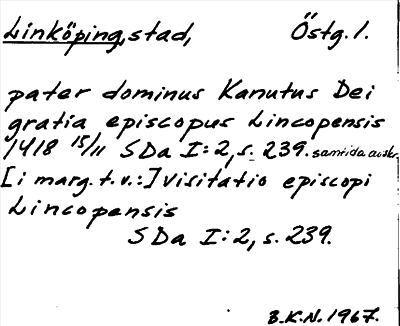 Linköping, stad, Östg. l.
pater dominus Kanutus Dei
gratia episcopus Lincopensis
1418 15/11 SDa I:2, s. 239. samtida avskr.
[i marg. t.v.:] Visitatio episcopi
Lincopensis
SDa I:2, s. 239.
B.K.N. 1967.